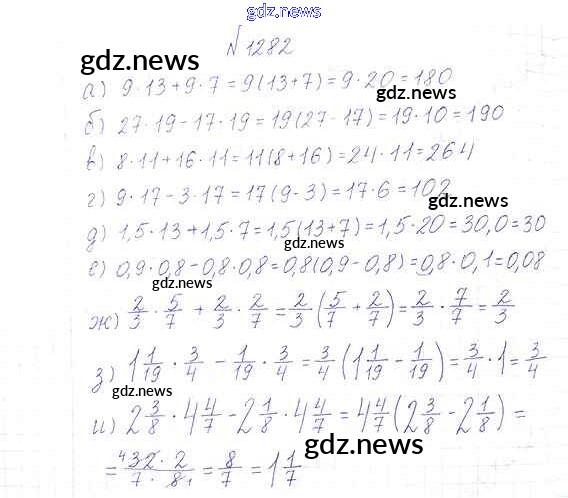 gdz.news
№1282
gdz.news
а) 9·13+9·7=9(13+7)=9·20=180
gdz.news
б) 27·19-17·19=19(27-17)=19·10=190
в) 8·11+16·11=11(8+16)=24·11=264
г) 9·17-3·17=17(9-3)=17·6=102
gdz.news
д) 1,5·13+1,5·7=1,5(13+7)=1,5·20=30,0=30
gdz.news
е) 0,9·0,8-0,8·0,8=0,8(0,9-0,8)=0,8·0,1=0,08
gdz.news
ж) 2/3 · 5/7 + 2/3 · 2/7 = 2/3 (5/7 + 2/7) = 2/3 · 7/7 = 2/3
з) 1 1/19 · 3/4 - 1/19 · 3/4 = 3/4 (1 1/19 - 1/19) = 3/4 · 1 = 3/4
gdz.news
и) 2 3/8 · 4 4/7 - 2 1/8 · 4 4/7 = 4 4/7 (2 3/8 - 2 1/8) =
gdz.news
= ⁴32·2/7·8₁ = 8/7 = 1 1/7